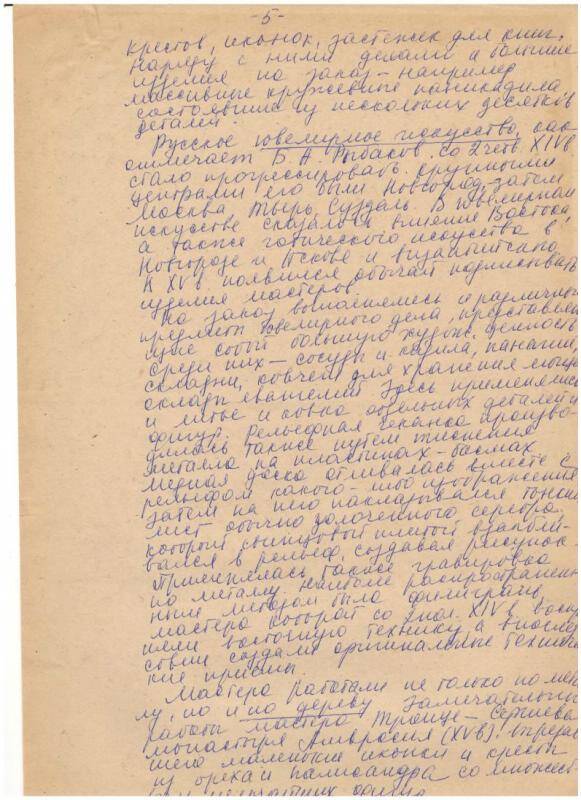 -5-
крестов, иконок, застежек для книг.
Наряду с ними делали и большие
изделия на заказ - например
массивные кружевные паникадила,
состоявшие из нескольких десятков
деталей.
Русское ювелирное искусство, как
отмечает Б. А. Рыбаков, со 2 четв. XIV в
стало прогрессировать. Крупными
центрами его были Новгород, затем
Москва, Тверь, Суздаль. В ювелирном
искусстве сказалось влияние Востока,
а также готического искусства в
Новгороде и Пскове и византийского.
К XV в. появился обычай подписывать
изделия мастеров.
На заказ выполнялись и различные
предметы ювелирного дела, представляв
шие собой большую худож. ценность
среди них - сосуды и кадила, панагии,
складни, ковчеги для хранения мощей
оклады евангелий. Здесь применялись
и литье и ковка отдельных деталей и
фигур. Рельефная чеканка произво
дилась также путем тиснения
металла на пластинах - басмах
Медная доска отливалась вместе с
рельефом какого-либо изображения
затем на него накладывался тонкий
лист обычно золоченного серебра
который свинцовой плитой вдавли-
вался в рельеф, создавая рисунок.
Применялась также гравировка
по металлу. Наиболее распространен
ным методом была филигрань,
мастера которой со 2 пол. XIV в. воспри
няли восточную технику, а впослед
ствии создали оригинальные техниче
кие приемы.
Мастера работали не только по метал
лу, но и по дереву. Замечательны
работы мастера Троице-Сергиева
монастыря Амвросия (XV в). Вырезав
шего маленькие иконки и кресты
из ореха и палисандра со множест